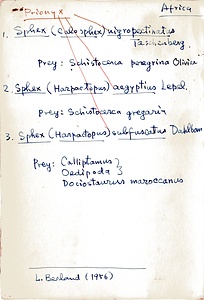 Prionyx
Africa
1. Sphex (Calosphex) nigropectinatus
Taschenberg.
Prey: Schistocerca peregrina Olivier
2. Sphex (Harpactopus) aegyptius Lepel.
Prey: Schistocerca gregaria
3. Sphex (Harpactopus) subfuscatus Dahlbom
Prey: Calliptamus }
Oedipoda }
Dociostaurus maroccanus
L. Berland (1956)